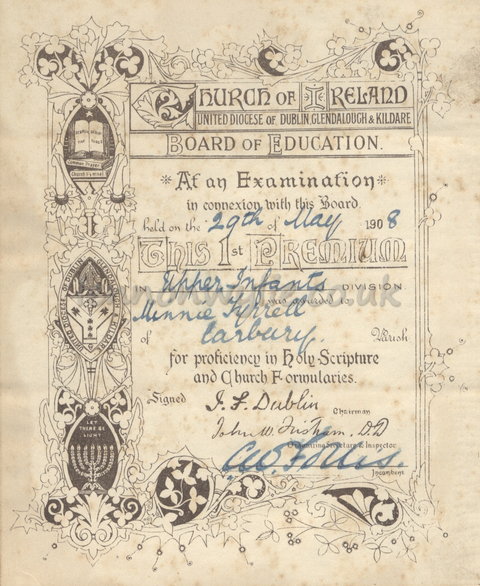 CHURCH OF IRELAND
UNITED DIOCESE OF DUBLIN, GLENDALOUGH & KILDARE
BOARD OF EDUCATION.
At an Examination
in connexion with this Board
held on the 29th of May 1908
This 1st PREMIUM
IN Upper Infants DIVISION
was awarded to
Minnie Tyrrell
of Carbury. Parish
for proficiency in Holy Scripture
and Church Formularies.
Signed J. F. Dublin
Chairman
John W. DD
Organizing Secretary & Inspector
Incumbent
Common Prayer
Church Hymnal
UNITED DIOCESE OF DUBLIN GLENDALOUGH & KILDARE
LET
THERE BE
LIGHT